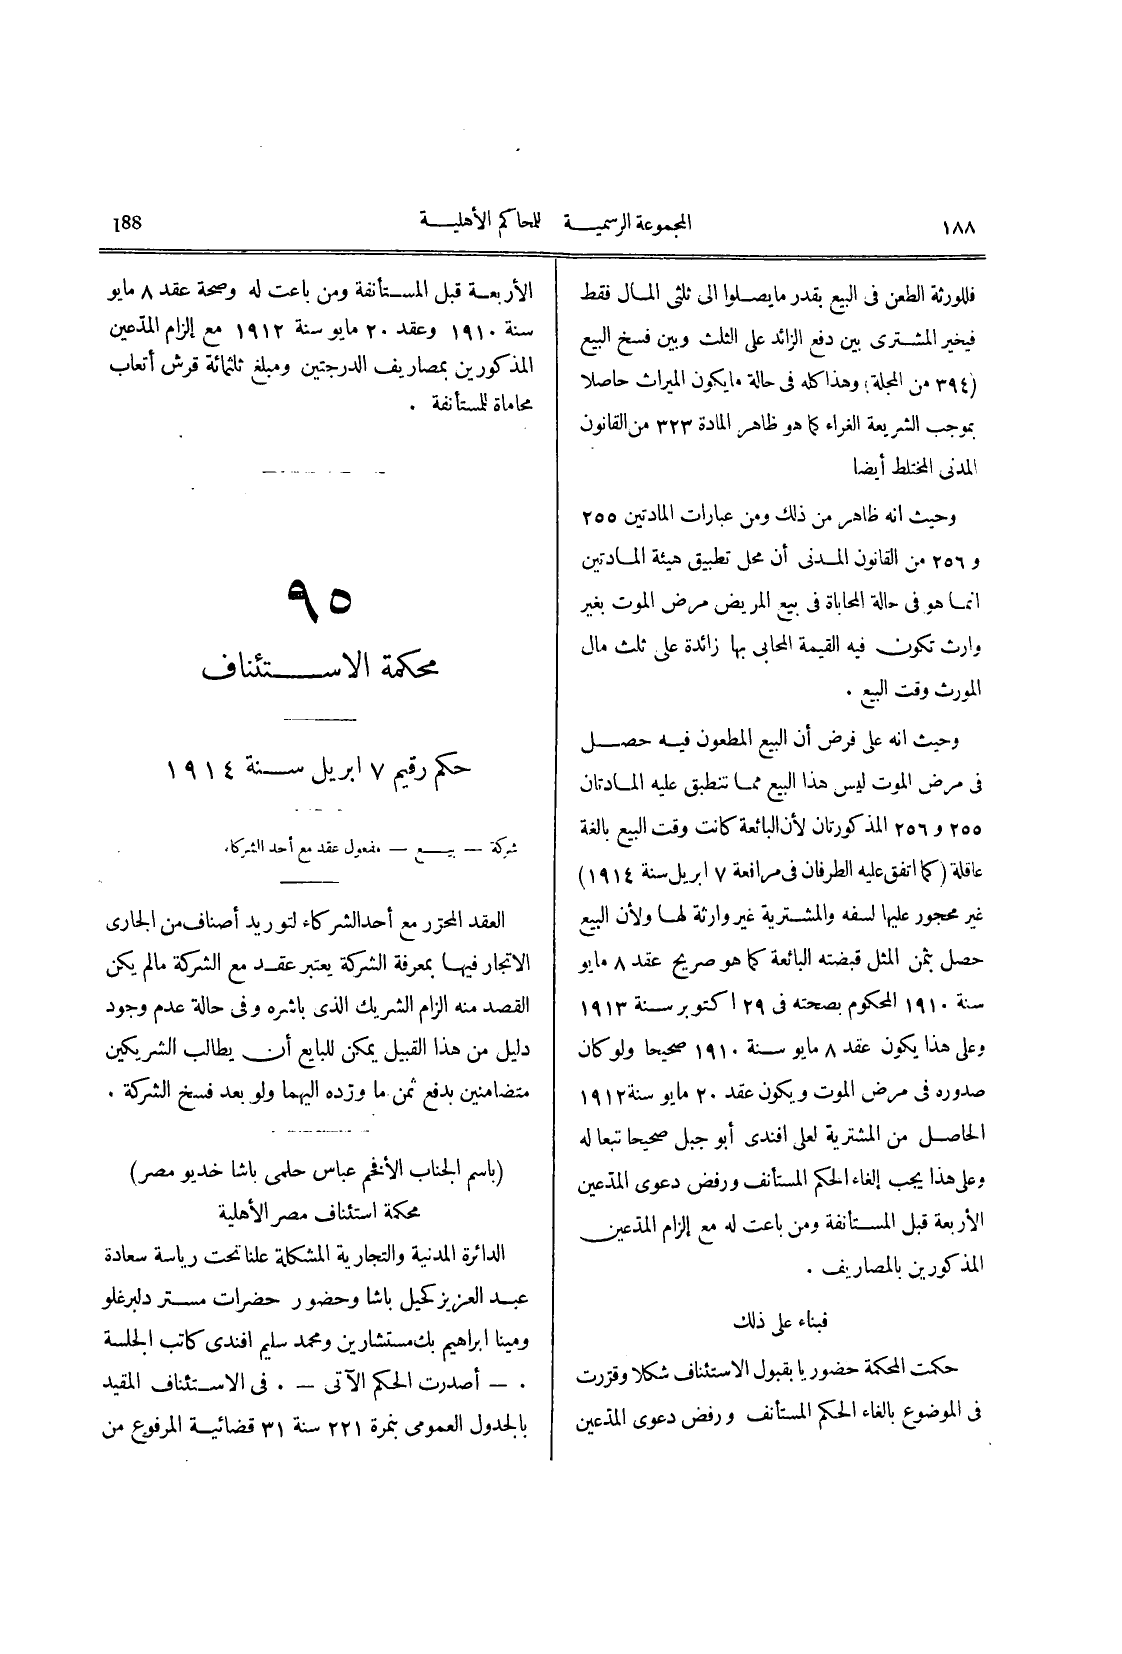 ١٨٨
المجموعة الرسمية للمحاكم الأهلية
188
فللورثة الطعن فى البيع بقدر مايصلوا الى ثلثى المال فقط
فيخير المشترى بين دفع الزائد على الثلث وبين فسخ البيع
(٣٩٤ من المجلة) وهذا كله فى حالة مايكون الميراث حاصلا
بموجب الشريعة الغراء كما هو ظاهر المادة ٣٢٣ من القانون
المدنى المختلط أيضا
وحيث انه ظاهر من ذلك ومن عبارات المادتين ٢٥٥
و ٢٥٦ من القانون المدنى أن محل تطبيق هيئة المادتين
انما هو فى حالة المحاباة فى بيع المريض مرض الموت بغير
وارث تكون فيه القيمة المحابى بها زائدة على ثلث مال
المورث وقت البيع .
وحيث انه على فرض أن البيع المطعون فيه حصل
فى مرض الموت ليس هذا البيع مما تنطبق عليه المادتان
٢٥٥ و ٢٥٦ المذكورتان لأن البائعة كانت وقت البيع بالغة
عاقلة (كما اتفق عليه الطرفان فى مرافعة ٧ ابريل سنة ١٩١٤)
غير محجور عليها لسفه والمشترية غير وارثة لها ولأن البيع
حصل بثمن المثل قبضته البائعة كما هو صريح عقد ٨ مايو
سنة ١٩١٠ المحكوم بصحته فى ٢٩ اكتوبر سنة ١٩١٣
وعلى هذا يكون عقد ٨ مايو سنة ١٩١٠ صحيحا ولو كان
صدوره فى مرض الموت ويكون عقد ٢٠ مايو سنة ١٩١٢
الحاصل من المشترية لعلى افندى أبو جبل صحيحا تبعا له
وعلى هذا يجب إلغاء الحكم المستأنف ورفض دعوى المدّعين
الأربعة قبل المستأنفة ومن باعت له مع إلزام المدّعين
المذكورين بالمصاريف .
فبناء على ذلك
حكمت المحكمة حضوريا بقبول الاستئناف شكلا وقرّرت
فى الموضوع بالغاء الحكم المستأنف ورفض دعوى المدّعين
الأربعة قبل المستأنفة ومن باعت له وصحة عقد ٨ مايو
سنة ١٩١٠ وعقد ٢٠ مايو سنة ١٩١٢ مع إلزام المدّعين
المذكورين بمصاريف الدرجتين ومبلغ ثلثمائة قرش أتعاب
محاماة للمستأنفة .
٩٥
محكمة الاستئناف
حكم رقيم ٧ ابريل سنة ١٩١٤
شركة — بيع — مفعول عقد مع أحد الشركاء
العقد المحرّر مع أحد الشركاء لتوريد أصناف من الجارى
الاتجار فيها بمعرفة الشركة يعتبر عقد مع الشركة مالم يكن
القصد منه الزام الشريك الذى باشره وفى حالة عدم وجود
دليل من هذا القبيل يمكن للبايع أن يطالب الشريكين
متضامنين بدفع ثمن ما ورّده اليهما ولو بعد فسخ الشركة .
(باسم الجناب الأفخم عباس حلمى باشا خديو مصر)
محكمة استئناف مصر الأهلية
الدائرة المدنية والتجارية المشكلة علنا تحت رياسة سعادة
عبد العزيز كحيل باشا وحضور حضرات مستر دلبرغلو
ومينا ابراهيم بك مستشارين ومحمد سليم افندى كاتب الجلسة
. — أصدرت الحكم الآتى — . فى الاستئناف المقيد
بالجدول العمومى بنمرة ٢٢١ سنة ٣١ قضائية المرفوع من